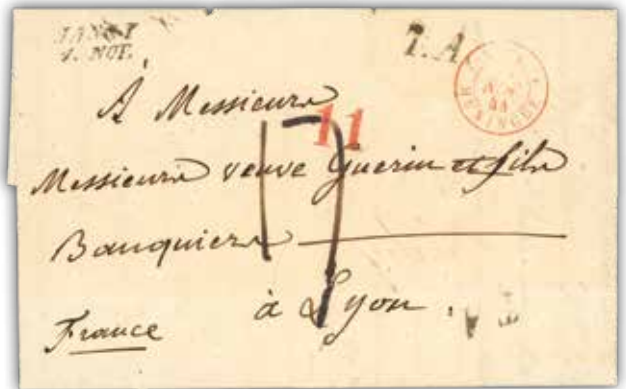 NOV.
T.A
11
17
À Messieurs
Messieurs veuve Guerin et fils
Banquiers
à Lyon.
France